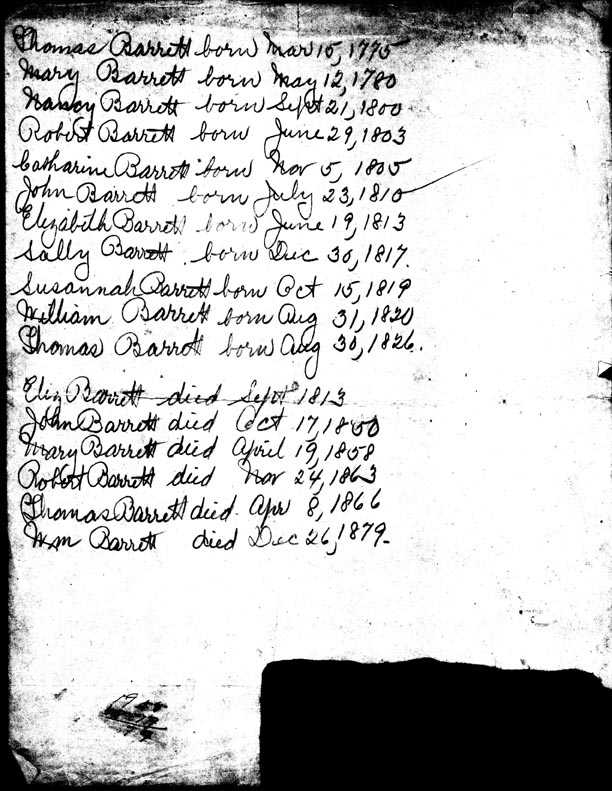 Thomas Barrett born Mar 15, 1775
Mary Barrett born May 12, 1780
Nancy Barrett born Sept 21, 1800
Robert Barrett born June 29, 1803
Catharine Barrett born Nov 5, 1805
John Barrett born July 23, 1810
Elizabeth Barrett born June 19, 1813
Sally Barrett born Dec 30, 1817.
Susannah Barrett born Oct 15, 1819
William Barrett born Aug 31, 1820
Thomas Barrott born Aug 30, 1826.
Eliz Barrett died Sept 1813
John Barrett died Oct 17, 1850
Mary Barrett died April 19, 1858
Robert Barrett died Nov 24, 1863
Thomas Barrett died Apr 8, 1866
Wm Barrett died Dec 26, 1879.